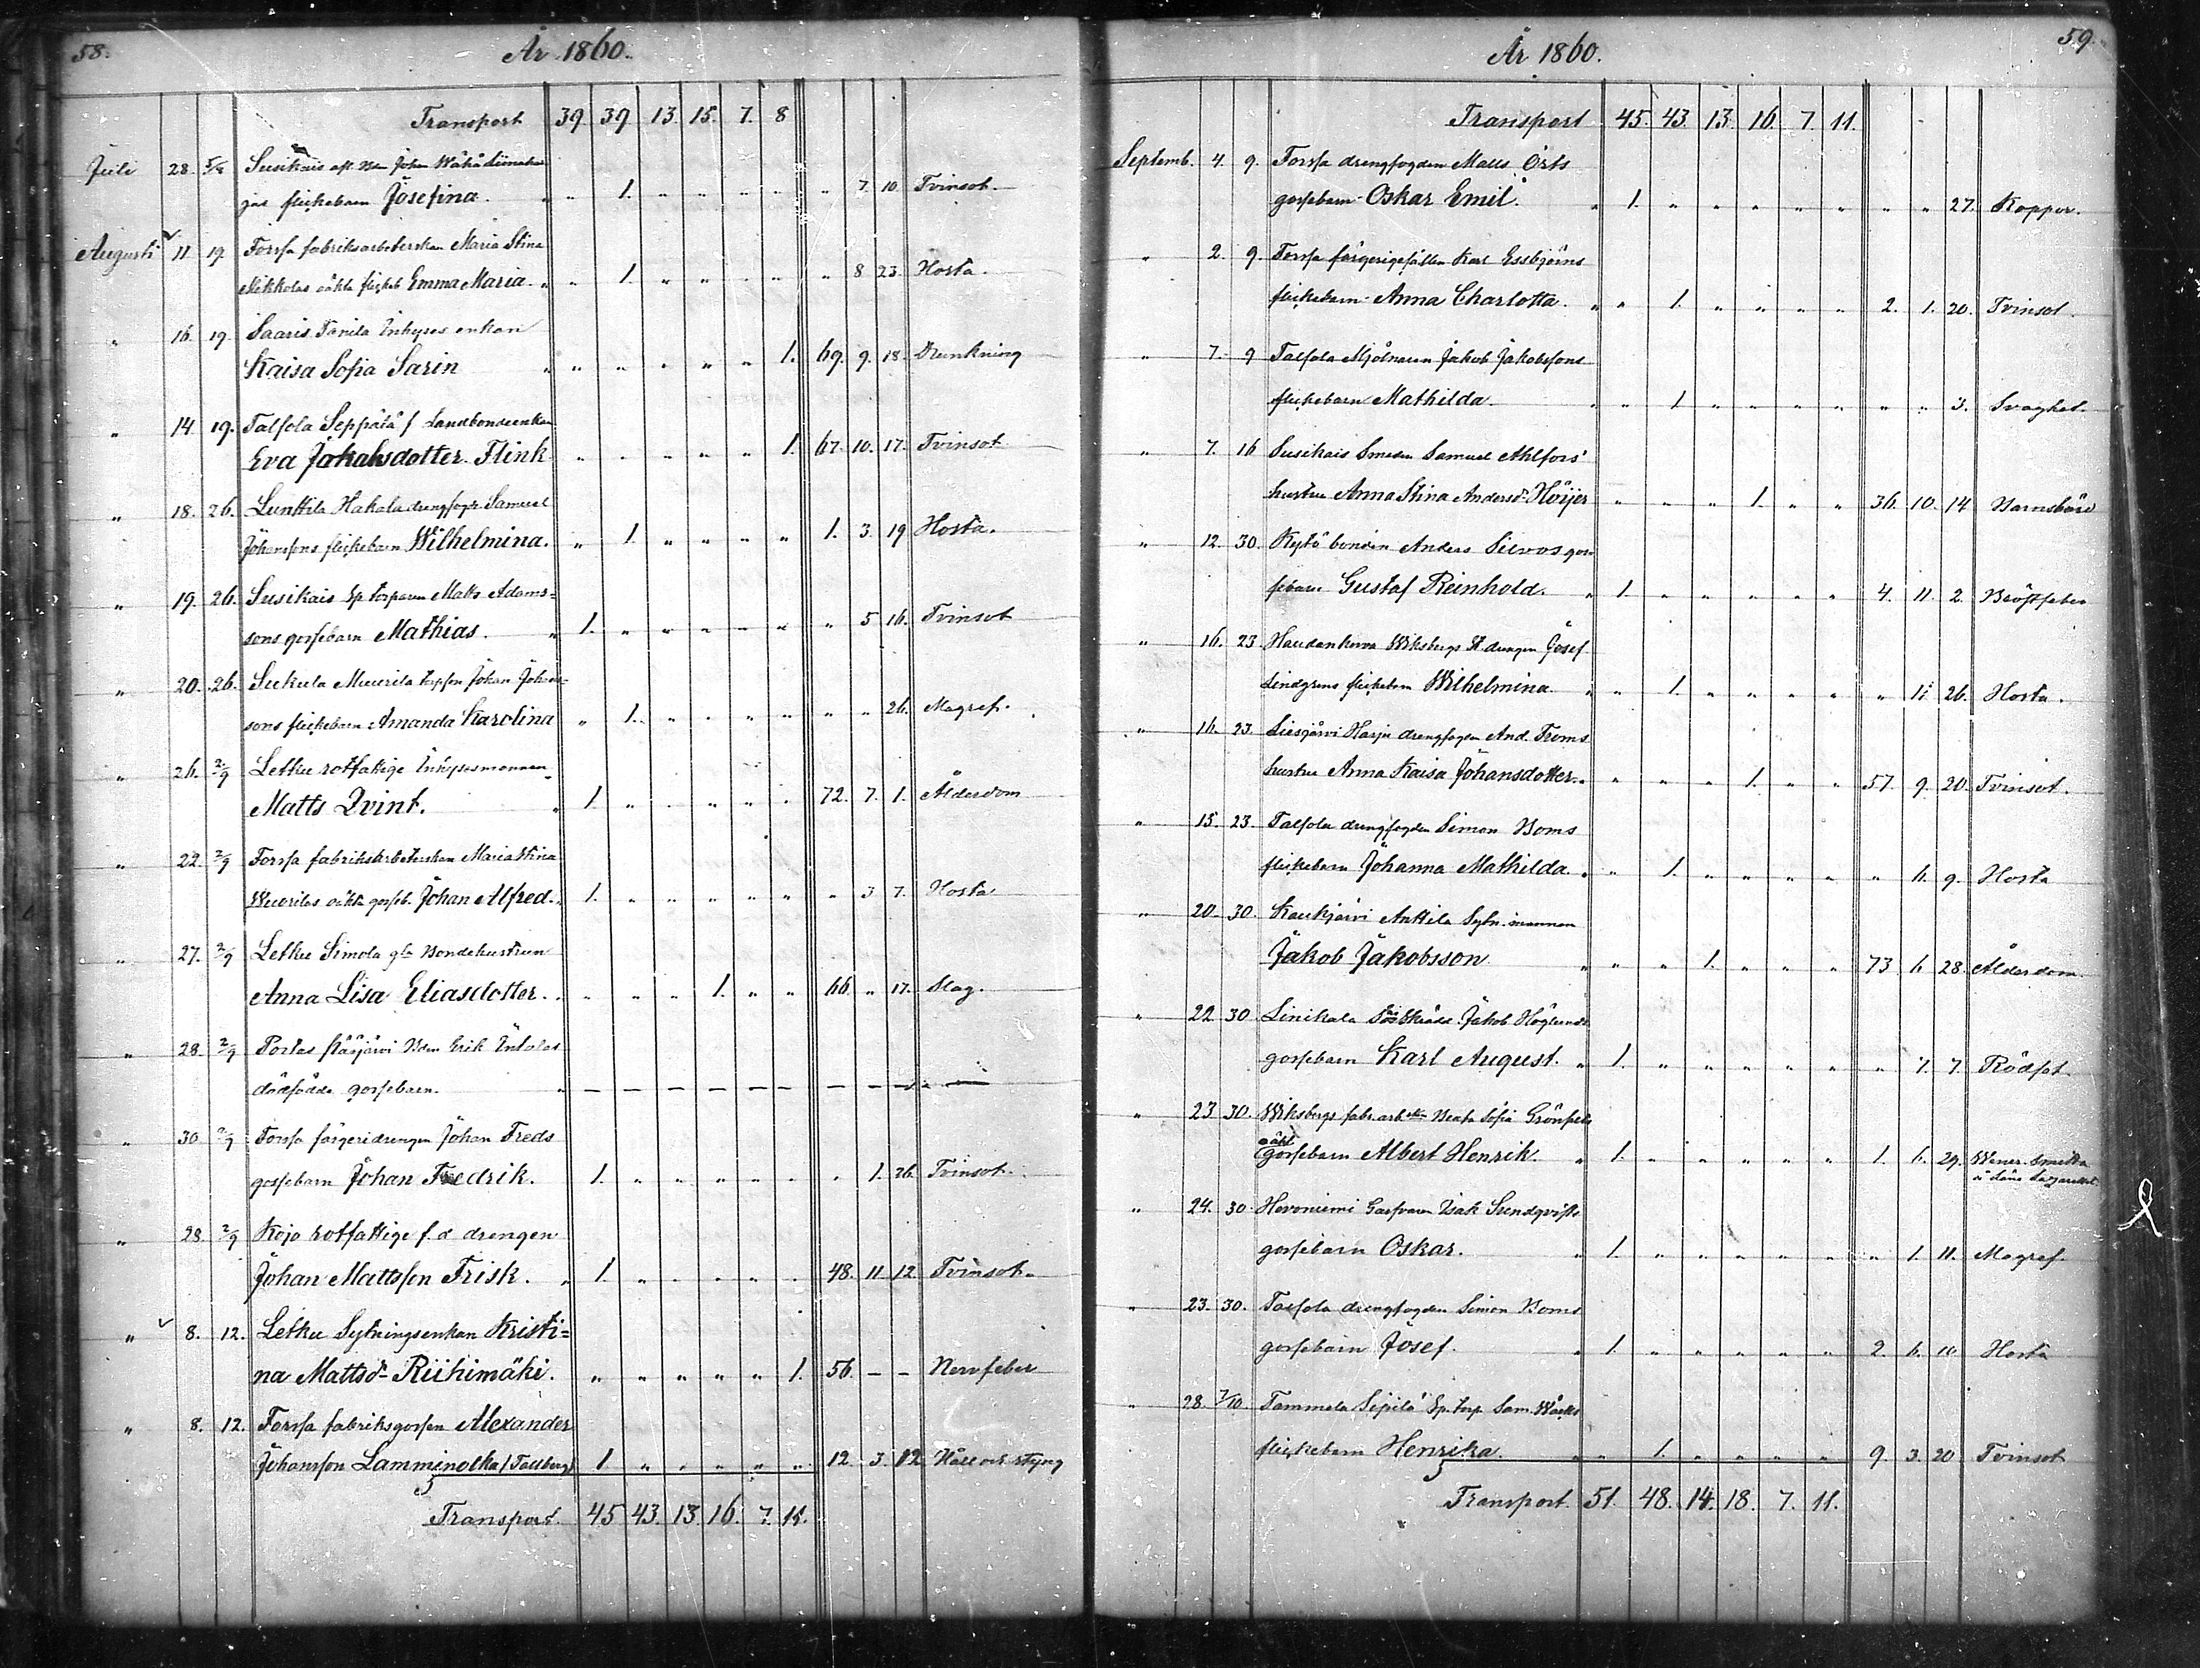 58.
År 1860.
Transport 39. 39. 13. 15. 7. 8
Juli 28. 5/8 Susikais afl. Johan Wähä
flickebarn Josefina. " 1. " " " " " 7. 10. Tvinsot.
Augusti 11 19 Forssa fabriksarbeterskan Maria Stina
Mikkolas oäkta flickeb Emma Maria. " 1. " " " " " 8 23. Hosta.
" 16. 19. Saaris Tanila Inhyses enkan
Kaisa Sofia Sarin " " " " " 1. 69. 9. 18. Drunkning
" 14 19. Talsola Seppälä f Landbondeenkan
Eva Jakobsdotter Flink " " " " " 1. 67. 10. 17. Tvinsot
" 18. 26. Lunttila Hakala drengfogd. Samuel
Johanssons flickebarn Wilhelmina. " 1. " " " " 1. 3. 19 Hosta.
" 19. 26. Susikais Sp torparen Matts Adams=
sons gossebarn Mathias. 1. " " " " " " 5 16. Tvinsot
" 20. 26. Sukula Muurila Johan Johans
sons flickebarn Amanda Karolina " 1. " " " " " " 26. Magref.
" 26. 2/9 Letku rotfattige Inhysesmannen
Matts Qvint. 1. " " " " " 72. 7. 1. Ålderdom
" 22. 2/9 Forssa fabriksarbeterskan Maria Stina
Wuorilas oäkta gosseb. Johan Alfred. 1. " " " " " " 3 7. Hosta
" 27. 2/9 Letku Simola gla Bondehustrun
Anna Lisa Eliasdotter. " " " 1. " " 66. " 17. Slag.
" 28. 2/9 Portas Kärjärvi Bdn Erik Intolas
dödfödda gossebarn. " — — — — — — — — —
" 30 2/9 Forssa färgeridrengen Johan Freds
gossebarn Johan Fredrik. 1. " " " " " " 1. 26. Tvinsot.
" 28. 2/9 Kojo rotfattige f.d drengen
Johan Mattsson Frisk. 1. " " " " " 48. 11 12. Tvinsot.
" 8. 12. Letku Sytningsenkan Kristi=
na Mattsdr Riihimäki. " " " " " 1. 56. — — Nervfeber
" 8. 12. Forssa fabriksgossen Alexander
Johansson Lamminolka/Tallberg 1. " " " " " 12. 3. 12 Håll och styng
Transport. 45 43. 13. 16. 7. 11.
59.
År 1860.
Transport 45. 43. 13. 16. 7. 11.
Septemb. 4. 9. Forssa drengfogden Matts Örts
gossebarn Oskar Emil. 1. " " " " " " " 27. Koppor.
" 2. 9. Forssa färgerigesällen Karl Essbjörns
flickebarn Anna Charlotta. " 1. " " " " 2. 1. 20. Tvinsot.
" 7. 9 Talsola Mjölnaren Jakob Jakobssons
flickebarn Mathilda. " 1 " " " " " " 3. Svaghet.
" 7. 16 Susikais Smeden Samuel Ahlfors'
hustru Anna Stina Andersdr Höijer " " " 1. " " 36. 10. 14 Barnsbörd
" 12. 30. Kytö bonden Anders Silvos gos
sebarn Gustaf Reinhold. 1. " " " " " 4. 11. 2. Bröstfeber
" 16. 23 Haudankorva Wiksbergs St drengen Josef
Lindgrens flickebarn Wilhelmina. " 1. " " " " " 11 26. Hosta.
" 16. 23. Liesjärvi Harju drengfogden And. Froms
hustru Anna Kaisa Johansdotter. " " " 1. " " 57. 9. 20. Tvinsot.
" 15. 23. Talsola drengfogden Simon Boms
flickebarn Johanna Mathilda. " 1. " " " " " 6. 9. Hosta
" 20 30. Kaukjärvi Anttila Sytn. mannen
Jakob Jakobsson " " 1. " " " 73 6 28. Ålderdom
" 22 30. Linikala Jakob Höglunds
gossebarn Karl August. 1. " " " " " " 7. 7. Rödsot.
" 23 30. Wiksbergs fabr. arb.skan Beata Sofia Grönfelts
oäkt
gossebarn Albert Henrik. 1. " " " " " 1. 6. 29. Wener. Smitta
å Läns Lazarettet.
" 24. 30. Heroniemi Garfvaren Isak Sundqvists
gossebarn Oskar. 1. " " " " " " 1. 11. Magref.
" 23. 30. Talsola drengfogden Simon Boms
gossebarn Josef. 1. " " " " " 2. 6. Hosta
" 28. 7/10 Tammela Sipilä Sp. torp. Sam.
flickebarn Henrika. " 1. " " " " 9. 3. 20 Tvinsot
Transport. 51. 48. 14. 18. 7. 11.